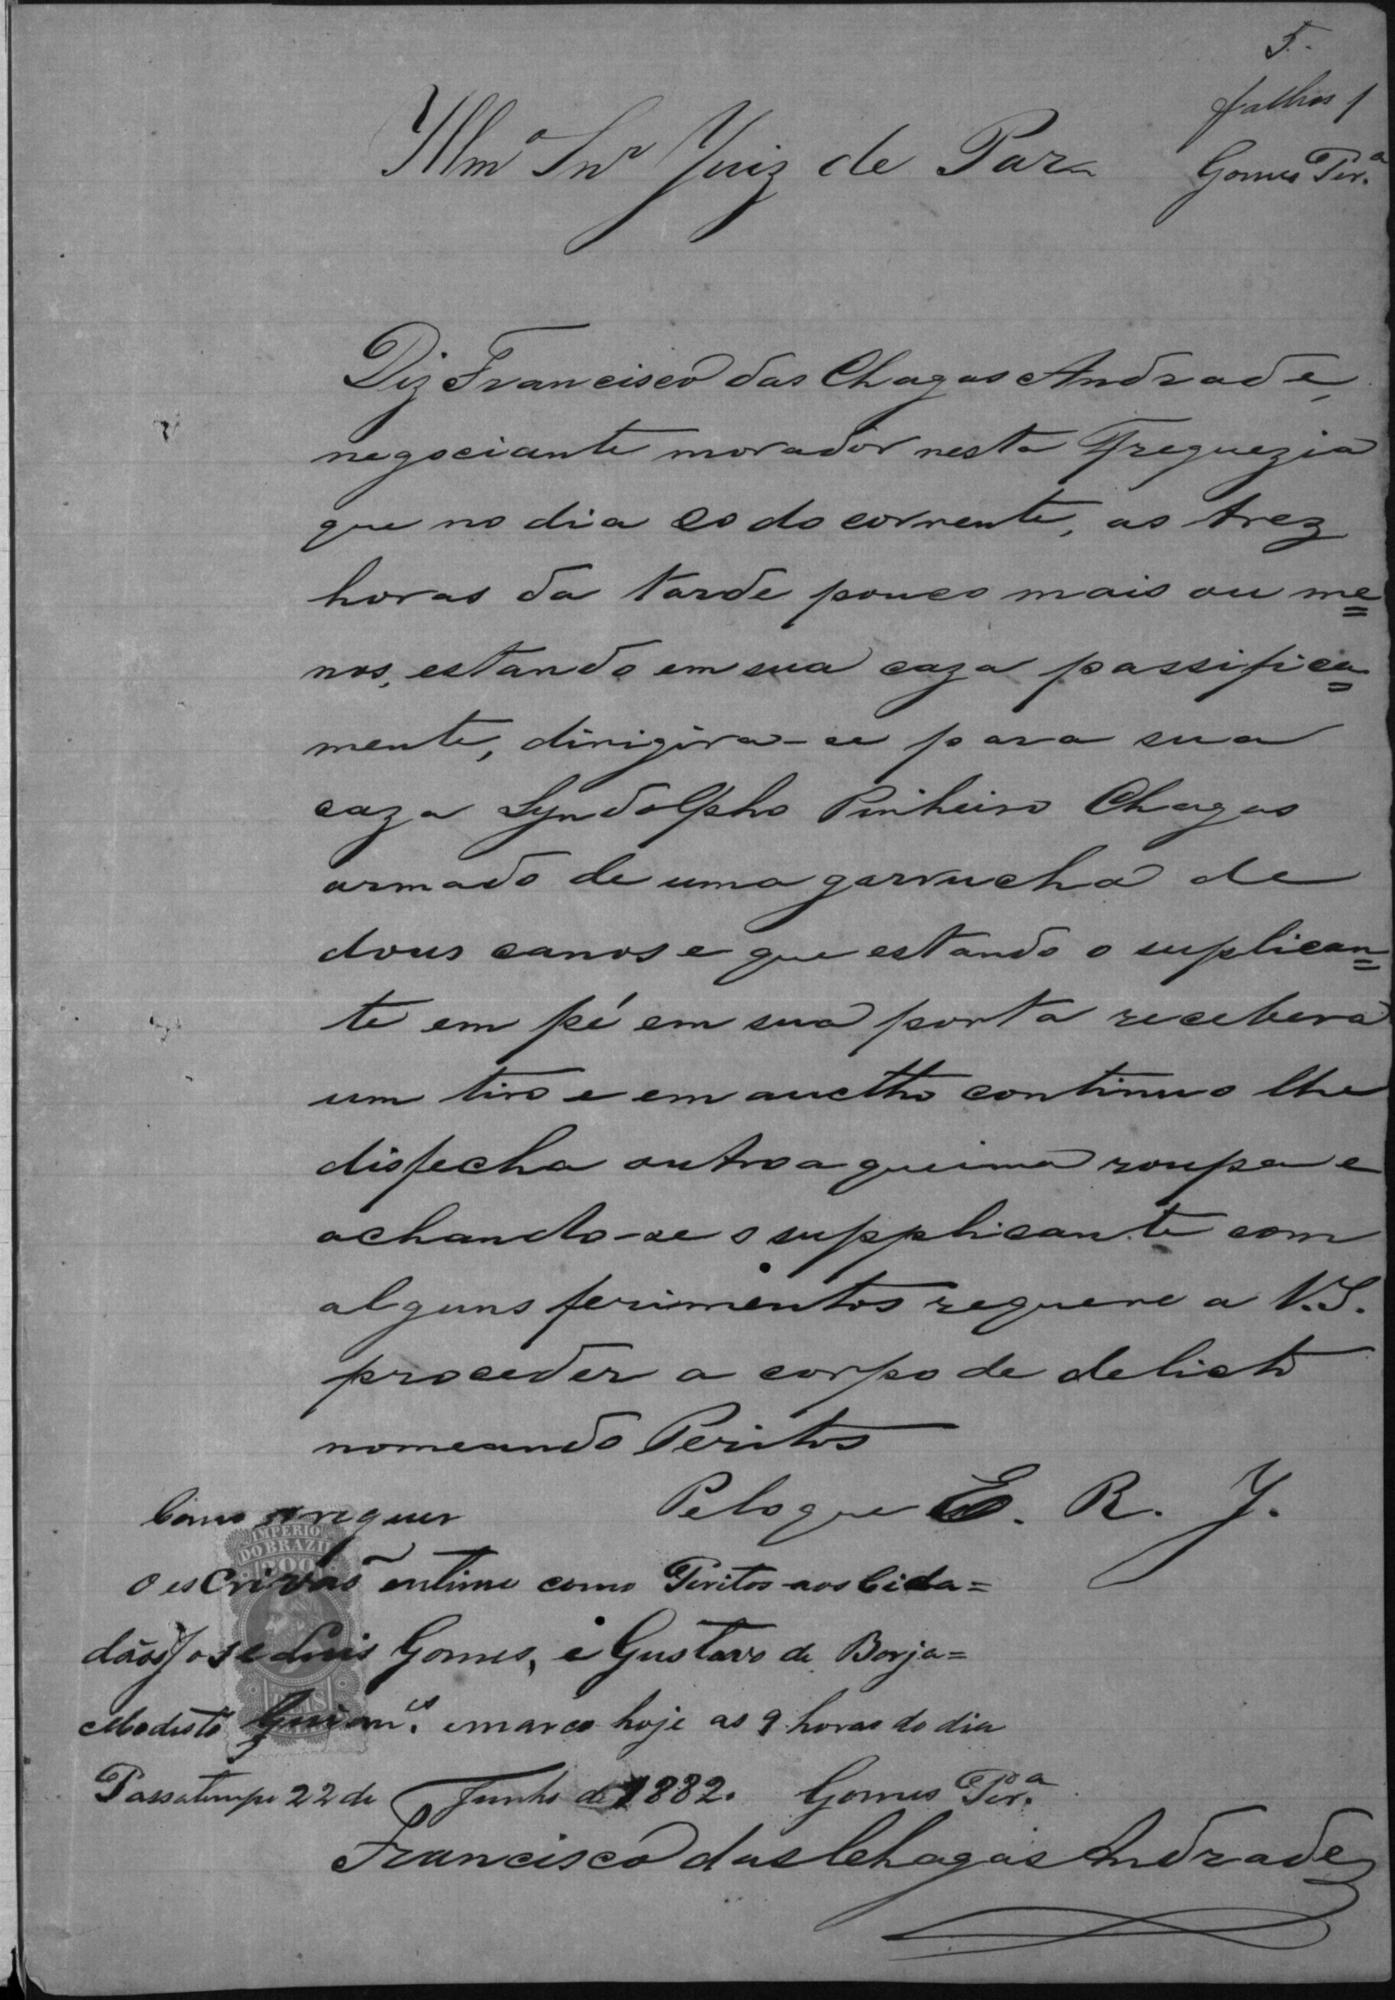 F.
folhas 1
Gomes Per.ª
Illmº Snr Juiz de Paz
Diz Francisco das Chagas Andrade,
negociante morador nesta Freguezia
que no dia 20 do corrente, as trez
horas da tarde pouco mais ou me=
nos, estando em sua caza passifica=
mente, dirigira-se para sua
caza Lyndolpho Pinheiro Chagas
armado de uma garrucha de
dous canos e que estando o suplican=
te em pé em sua porta recebera
um tiro e em auctho continuo lhe
disfecha outro a queima roupa e
achando-se o supplicante com
alguns ferimentos requere a V.S.
proceder a corpo de delicto
nomeando Peritos
Pelo que E. R. J.
Como requer
IMPERIO
DO BRAZIL
200
REIS
O escrivão entime como Peritos aos Cida=
dãos Jose Luis Gomes, e Gustavo de Borja=
Modesto Guim.es e marco hoje as 9 horas do dia
Passatempo 22 de Junho de 1882. Gomes Per.ª
Francisco das Chagas Andrade